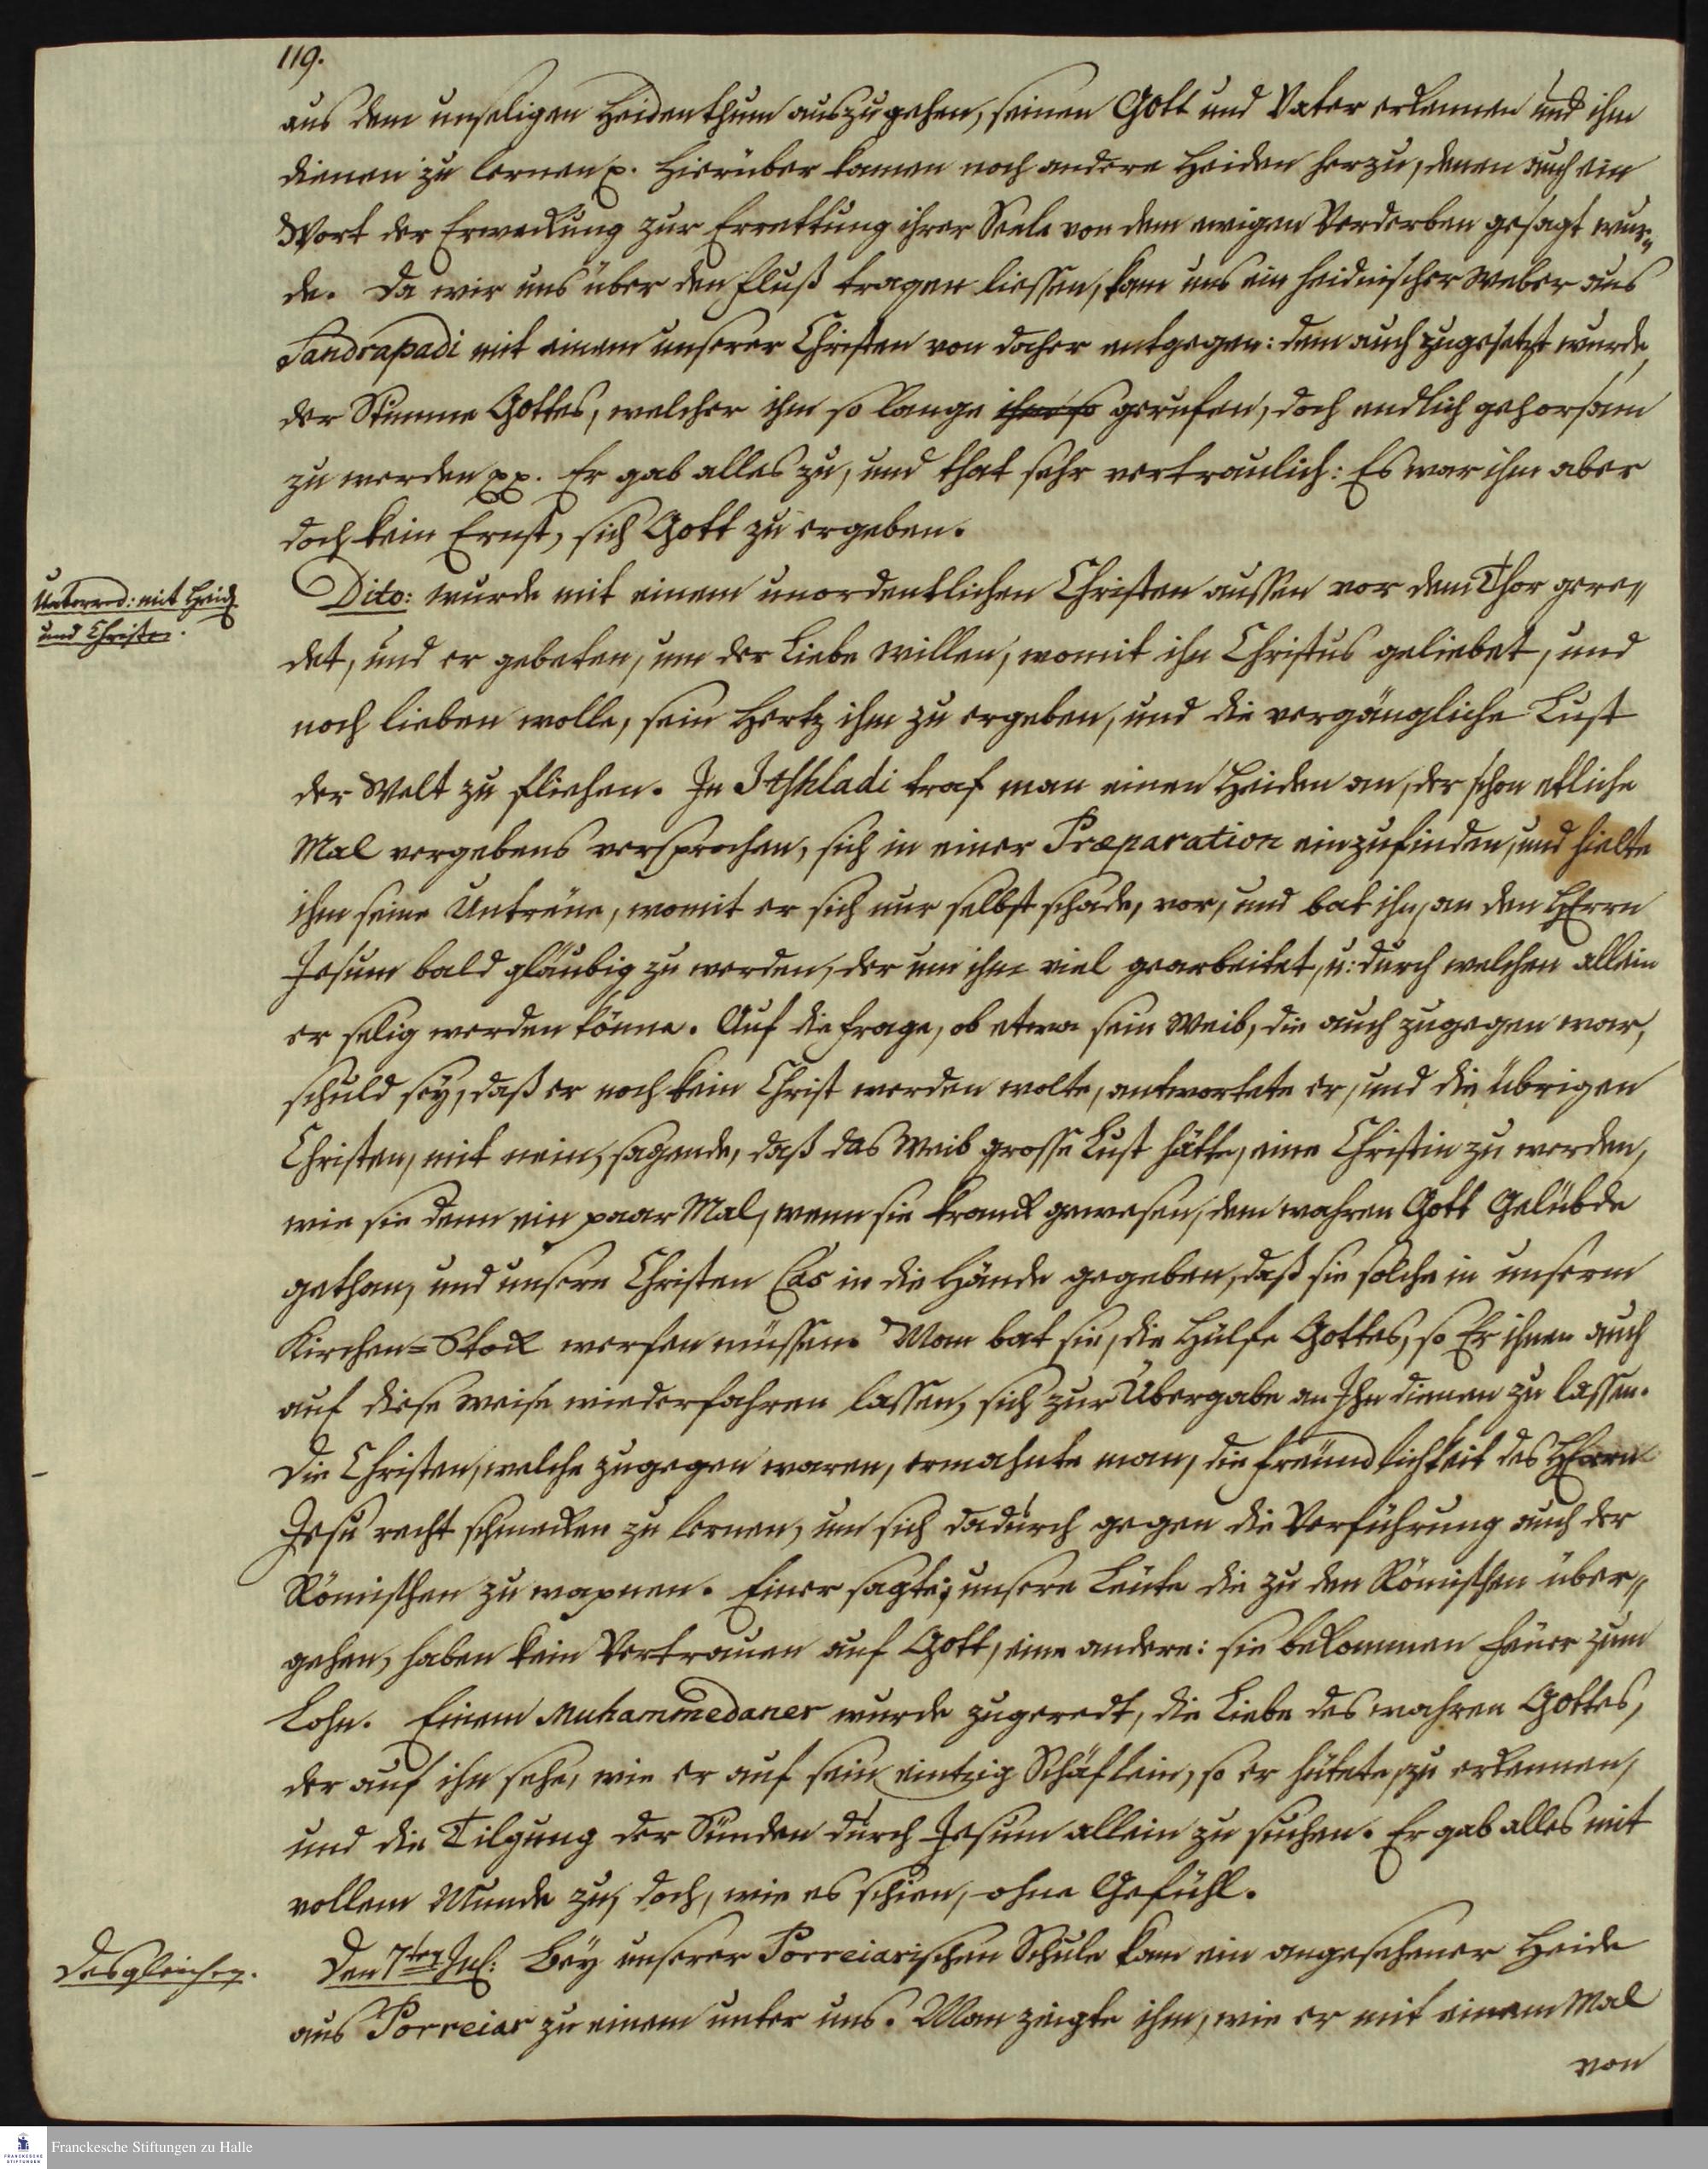 119.
aus dem unseligen Heidenthum auszugehen, seinen Gott und Vater erkennen und ihm
dienen zu lernen p. Hierüber kamen noch andere Heiden herzu, denen auch ein
Wort der Erweckung zur Errettung ihrer Seele von dem ewigen Verderben gesagt wur„
de. Da wir uns über den Fluß tragen liessen, kam uns ein heidnischer Weber aus
Sandrapadi mit einem unserer Christen von daher entgegen: dem auch zugesetzt wurde,
der Stimme Gottes, welcher ihm so lange ihm so gerufen, doch endlich gehorsam
zu werden pp. Er gab alles zu, und that sehr vertraulich: Es war ihm aber
doch kein Ernst, sich Gott zu ergeben.
Unterred: mit Heid.
und Christen.
Dito: wurde mit einem unordentlichen Christen aussen vor dem Thor gere„
det, und er gebeten, um der Liebe willen, womit ihn Christus geliebet, und
noch lieben wolle, sein Hertz ihm zu ergeben, und die vergängliche Lust
der Welt zu fliehen. In traf man einen Heiden an, der schon etliche
Mal vergebens versprochen, sich in einer Præparation einzufinden, und hielte
ihm seine Untreüe, womit er sich nur selbst schade, vor, und bat ihn, an den HErrn
Jesum bald gläubig zu werden, der um ihn viel gearbeitet, u: durch welchen allein
er selig werden könne. Auf die Frage, ob etwa sein Weib, die auch zugegen war,
schuld sey, daß er noch kein Christ werden wolte, antwortete er, und die übrigen
Christen, mit nein, sagende, daß das Weib grosse Lust hätte, eine Christin zu werden,
wie sie denn ein paar Mal, wenn sie kranck gewesen, dem wahren Gott Gelübde
gethan, und unsere Christen Cas in die Hände gegeben, daß sie solche in unserm
Kirchen-Stock werfen müssen. Man bat sie, die Hülfe Gottes, so Er ihnen auch
auf diese Weise wiederfahren lassen, sich zur Übergabe an Ihn dienen zu lassen.
Die Christen, welche zugegen waren, ermahnte man, die Freündlichkeit des HErrn
Jesu recht schmecken zu lernen, um sich dadurch gegen die Verführung auch der
Römischen zu wapnen. Einer sagte: unsere Leute die zu den Römischen über„
gehen, haben kein Vertrauen auf Gott, eine andere: sie bekommen Feüer zum
Lohn. Einem Muhammedaner wurde zugeredt, die Liebe des wahren Gottes,
der auf ihn sehe, wie er auf sein eintzig Schäflein, so er hütete, zu erkennen,
und die Tilgung der Sünden durch Jesum allein zu suchen. Er gab alles mit
vollem Munde zu, doch, wie es schien, ohne Gefühl.
Desgleichen.
Den 7ten Jul: Bey unserer Porreiarischen Schule kam ein angesehener Heide
aus Porreiar zu einem unter uns. Man zeigte ihm, wie er mit einem Mal
von
FRANCKESCHE
STIFTUNGEN
Franckesche Stiftungen zu Halle